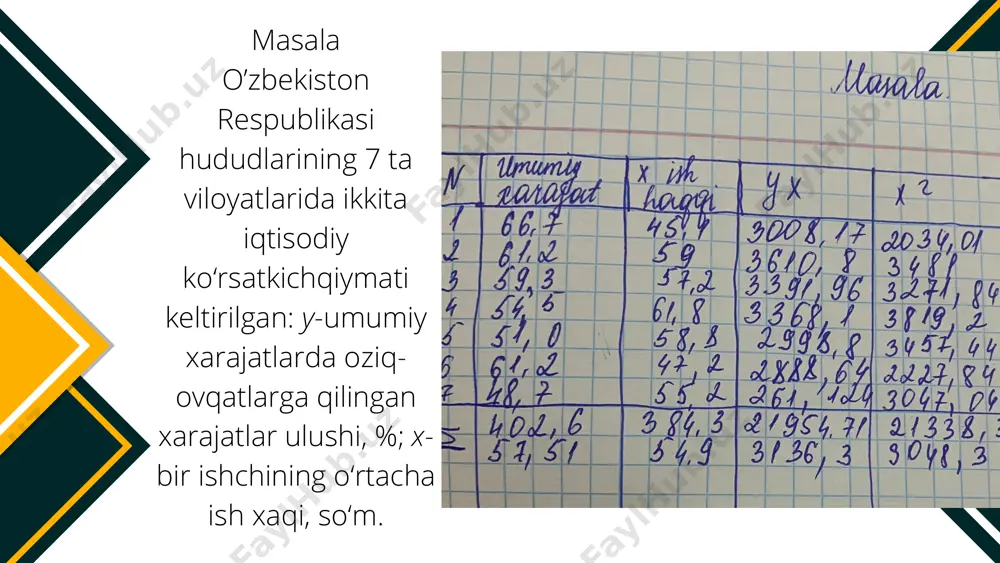 Masala
O’zbekiston
Respublikasi
hududlarining 7 ta
viloyatlarida ikkita
iqtisodiy
ko‘rsatkichqiymati
keltirilgan: y-umumiy
xarajatlarda oziq-
ovqatlarga qilingan
xarajatlar ulushi, %; x-
bir ishchining o‘rtacha
ish xaqi, so‘m.
Masala.
N Umumiy xarajat x ish haqqi y x x²
1 66,7 45,4 3008,17 2034,01
2 61,2 59 3610,8 3481
3 59,3 57,2 3391,96 3271,84
4 54,5 61,8 3368,1 3819,2
5 51,0 58,8 2998,8 3457,44
6 61,2 47,2 2888,64 2227,84
7 48,7 55,2 261,124 3047,04
Σ 402,6 384,3 21954.71 21338,
57,51 54.9 3136,3 3048,3
FaylHub.uz
FaylHub.uz
FaylHub.uz
FaylHub.uz